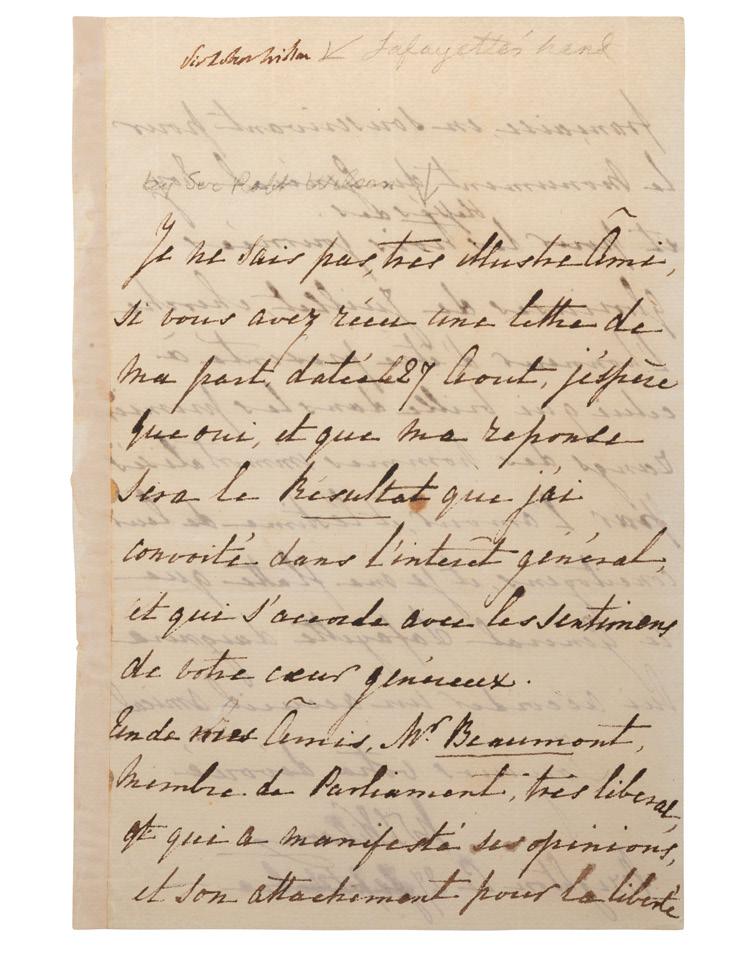 Sir Robert Wilson Lafayette's hand
by Sir Robt Wilson
Je ne sais pas, très illustre Ami,
si vous avez réçu une lettre de
ma part, datée le 27 Aout, j'éspère
que oui, et que ma reponse
sera le Résultat que j'ai
convoité dans l'intérêt général,
et qui s'accorde avec les sentimens
de votre cœur généreux.
Un de mes Amis, Mr Beaumont,
membre de Parliament, très liberal,
et qui a manifesté ses opinions,
et son attachement pour la liberté